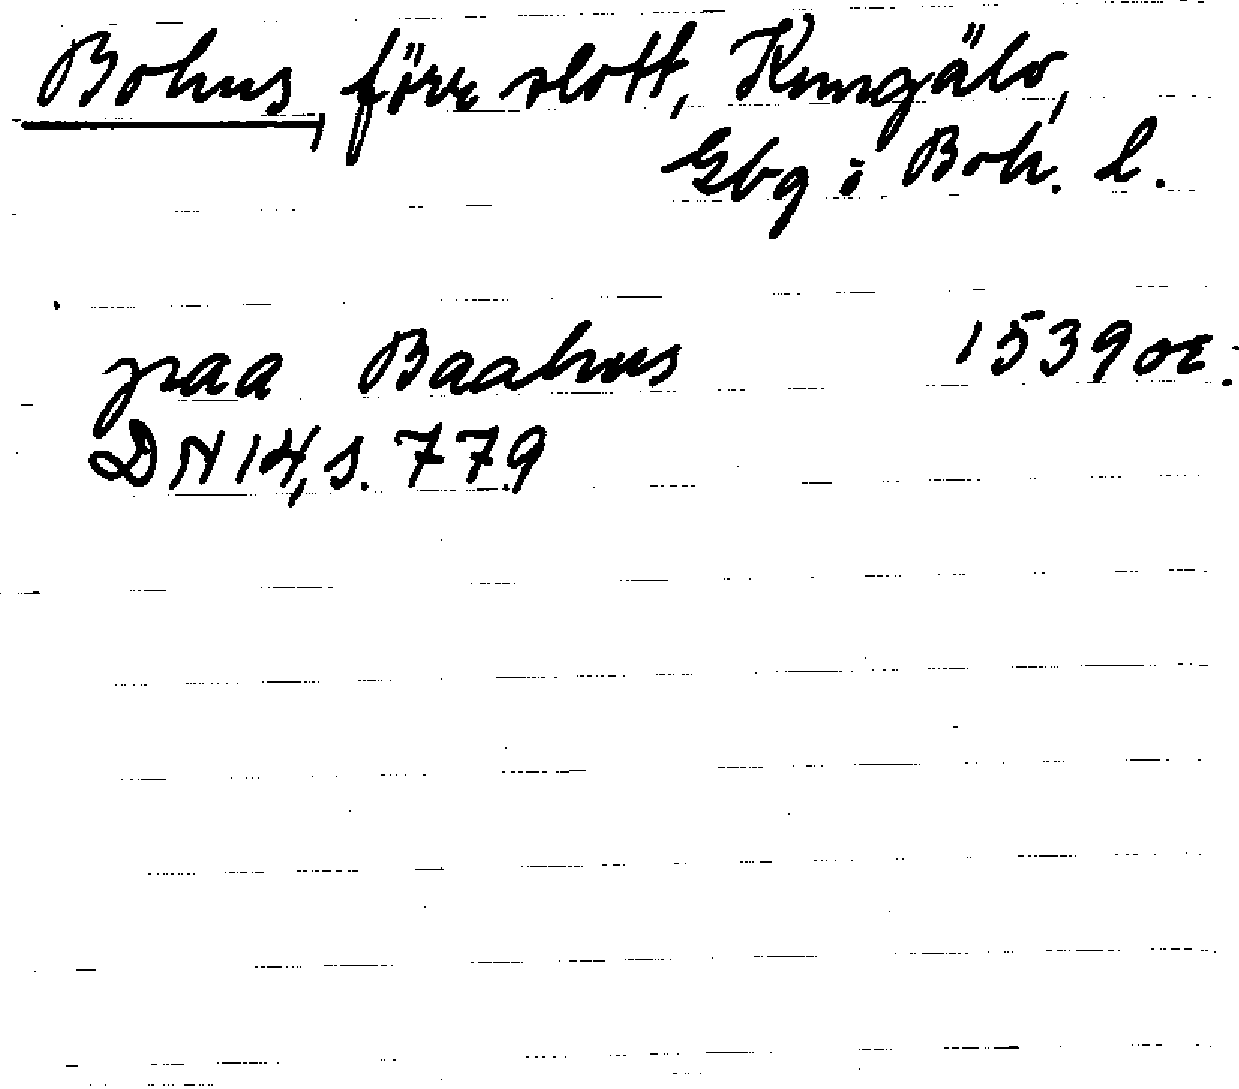 Bohus, förr slott, Kungälv,
Gbg i Boh. l.
paa Baahus 1539 or.
DN 14, s. 779